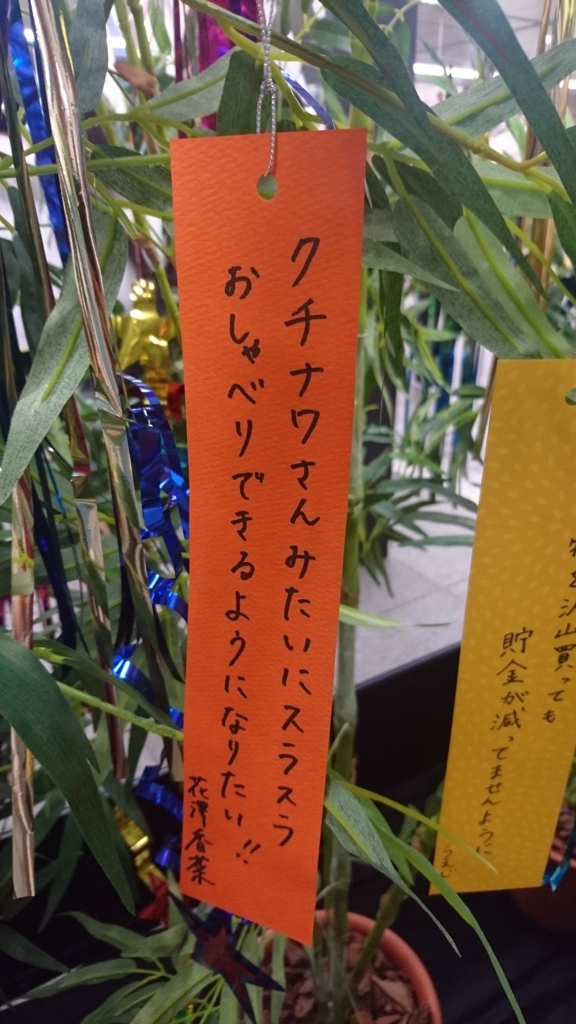 クチナワさんみたいにスラスラ
おしゃべりできるようになりたい!!
花澤香菜
を沢山買っても
貯金が減ってませんように